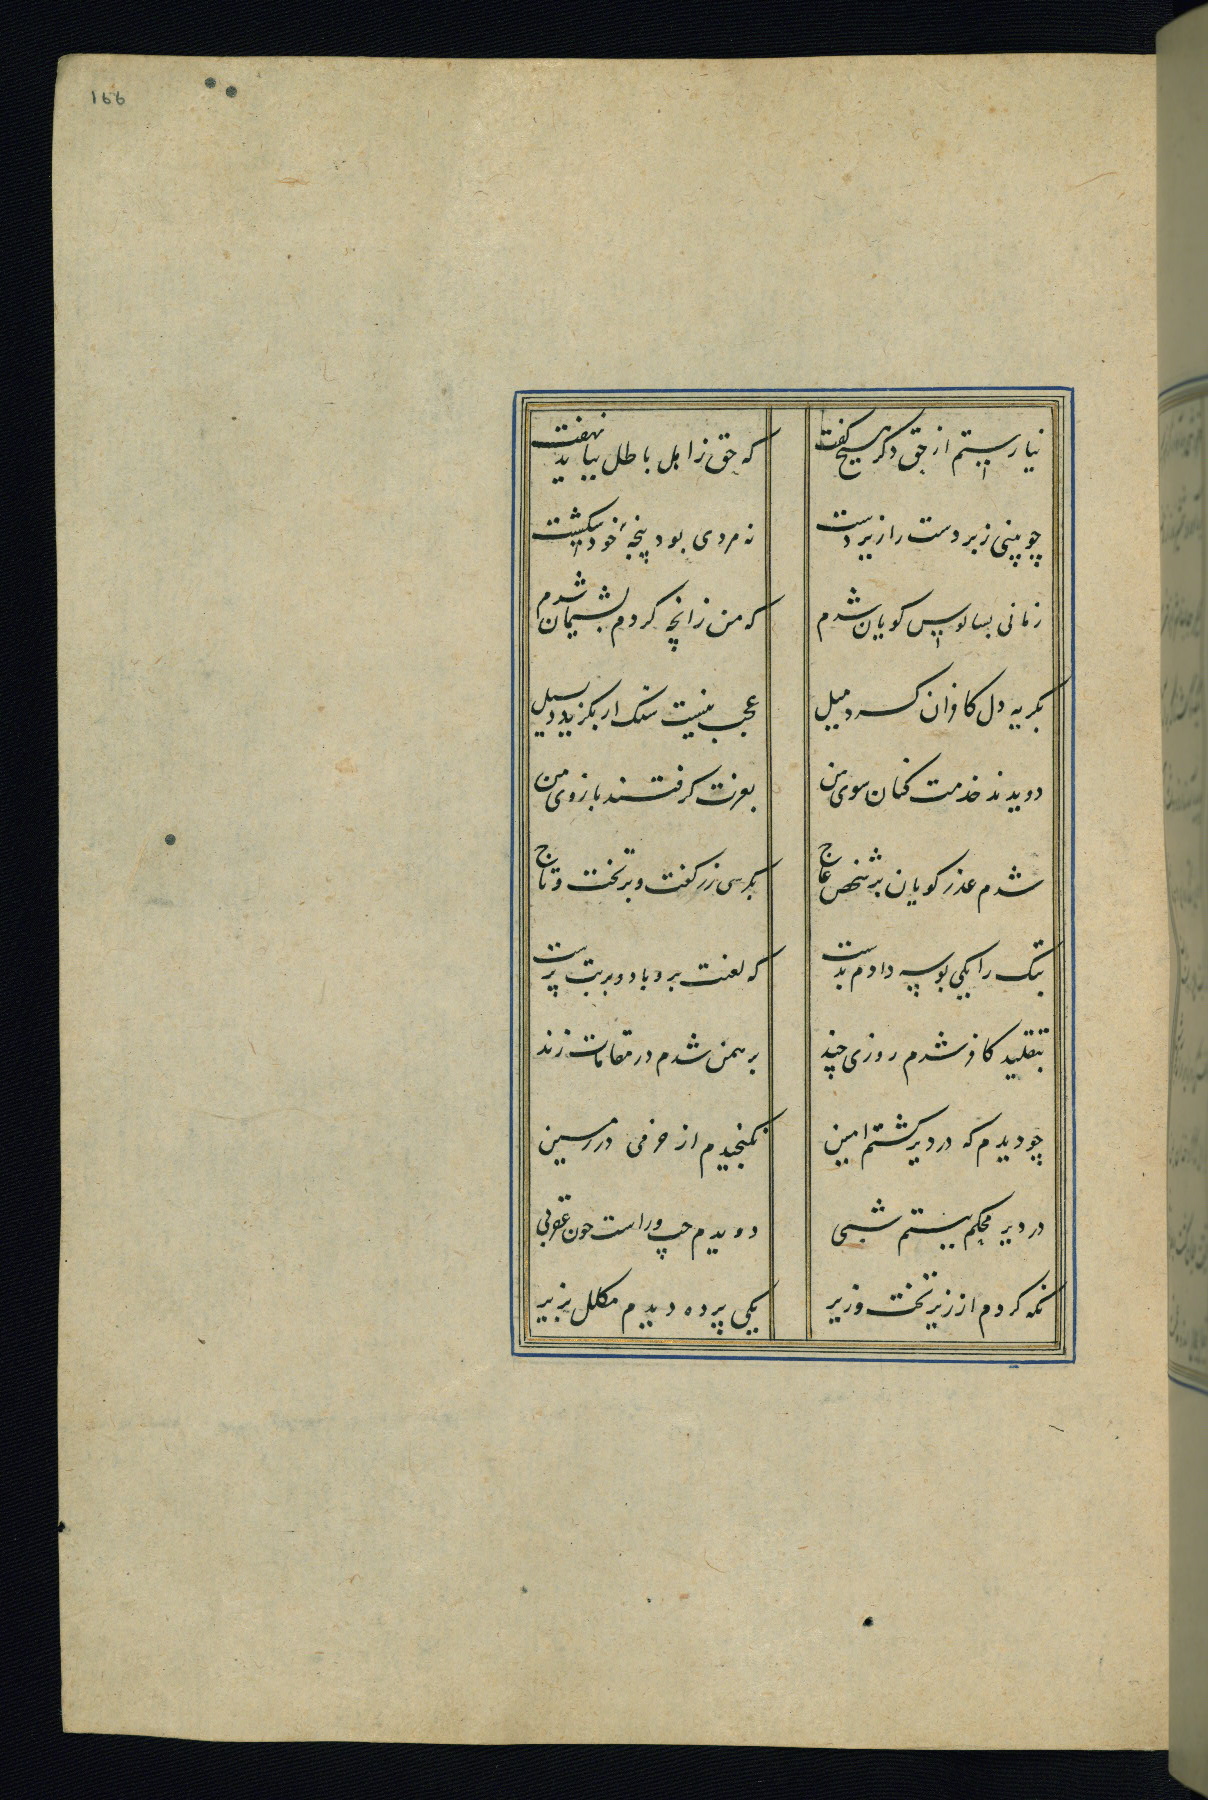 166
نیارستم از حق دکر هیچ کفت که حق ز اهل باطل بباید نهفت
چو بینی زبردست را زیر دست نه مردی بود پنجهٔ خود شکست
زمانی بسالوس کویان شدم که من زانچه کردم پشیمان شدم
بکریه دل کافران کرد میل عجب نیست سنک ار بکردد بسیل
دویدند خدمت کنان سوی من بعزت کرفتند بازوی من
شدم عذر کویان بر شخص عاج بکرسی زر کفت و بر تخت و تاج
بتک را یکی بوسه دادم بدست که لعنت برو باد و بر بت پرست
بتقلید کافر شدم روزی چند برهمن شدم در مقامات زند
چو دیدم که در دیر کشتم امین نکنجیدم از خرمی در زمین
در دیر محکم ببستم شبی دویدم چپ و راست چون عقربی
نکه کردم از زیر تخت و زبر یکی پرده دیدم مکلل بزر